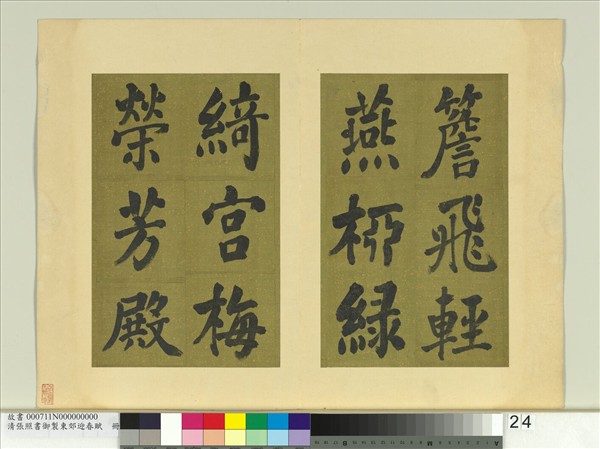 簷飛輕
燕桺綠
綺宮梅
榮芳殿
故書 000711N000000000
清張照書御製東郊迎春賦 冊
24